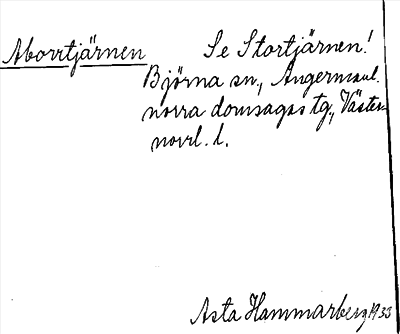 Aborrtjärnen Se Stortjärnen!
Björna sn., Ångermanl.
norra domsagas tg., Väster-
norrl. l.
Asta Hammarberg 1933